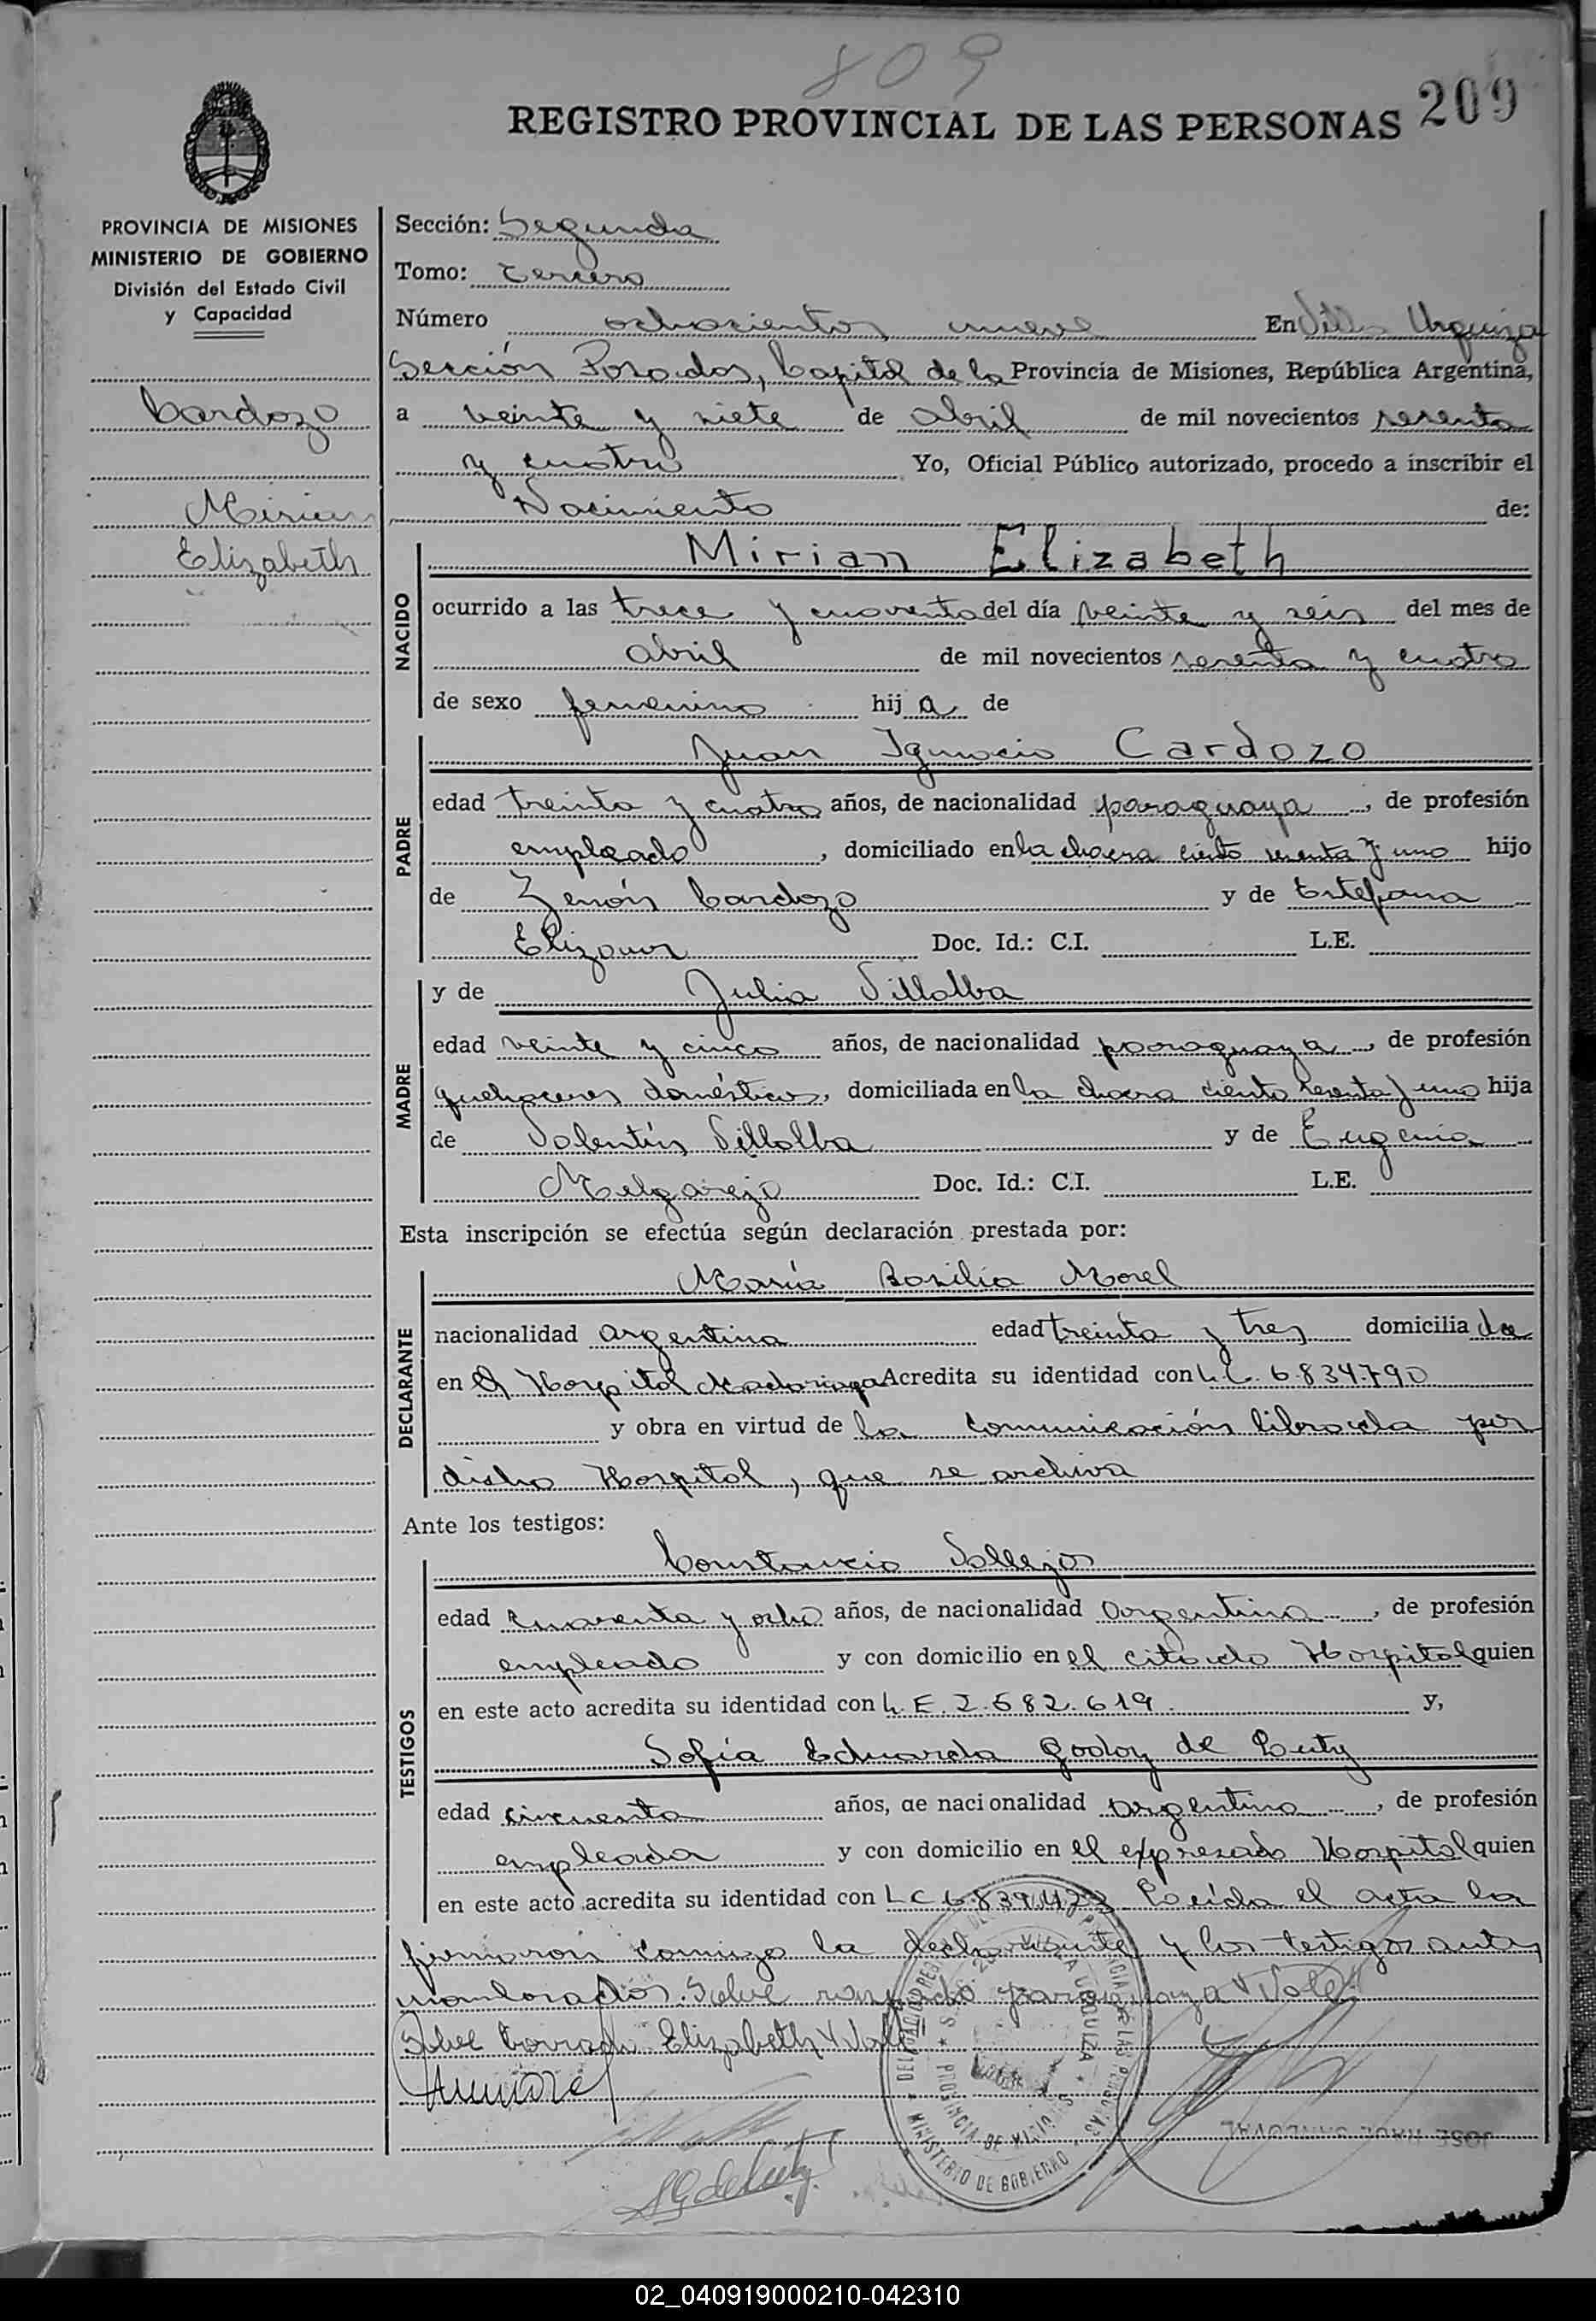 809
REGISTRO PROVINCIAL DE LAS PERSONAS 209
PROVINCIA DE MISIONES
MINISTERIO DE GOBIERNO
División del Estado Civil
y Capacidad
Cardozo
Mirian
Elizabeth
Sección: Segunda
Tomo: tercero
Número ochocientos nueve En Villa Urquiza
Sección Posadas, Capital de la Provincia de Misiones, República Argentina,
a veinte y siete de abril de mil novecientos sesenta
y cuatro Yo, Oficial Público autorizado, procedo a inscribir el
Nacimiento de:
NACIDO
Mirian Elizabeth
ocurrido a las trece y cuarenta del día veinte y seis del mes de
abril de mil novecientos sesenta y cuatro
de sexo femenino hij a de
PADRE
Juan Ignacio Cardozo
edad treinta y cuatro años, de nacionalidad paraguaya, de profesión
empleado, domiciliado en la chacra ciento sesenta y uno hijo
de Zenón Cardozo y de Estefana
Elizaur Doc. Id.: C.I. L.E.
MADRE
y de Julia Villalba
edad veinte y cinco años, de nacionalidad paraguaya, de profesión
quehaceres domésticos, domiciliada en la chacra ciento sesenta y uno hija
de Valentín Villalba y de Eugenia
Melgarejo Doc. Id.: C.I. L.E.
Esta inscripción se efectúa según declaración prestada por:
DECLARANTE
María Basilia Morel
nacionalidad argentina edad treinta y tres domicilia da
en el Hospital Madariaga Acredita su identidad con L.C. 6.834.790
y obra en virtud de la comunicación librada por
dicho Hospital, que se archiva
Ante los testigos:
TESTIGOS
Constancio Vallejos
edad cuarenta y ocho años, de nacionalidad argentina, de profesión
empleado y con domicilio en el citado Hospital quien
en este acto acredita su identidad con L.E. 2.582.619. y,
Sofía Eduarda Godoy de Luty
edad cincuenta años, de nacionalidad argentina, de profesión
empleada y con domicilio en el expresado Hospital quien
en este acto acredita su identidad con LC 6.839.473 Leída el acta la
firmaron conmigo la declarante y los testigos antes
nombrados. Sobre raspado paraguaya Vale
Sobre borrado Elizabeth Vale
MINISTERIO DE GOBIERNO
PROVINCIA DE MISIONES
VILLA URQUIZA
SGdeLuty
02_040919000210-042310